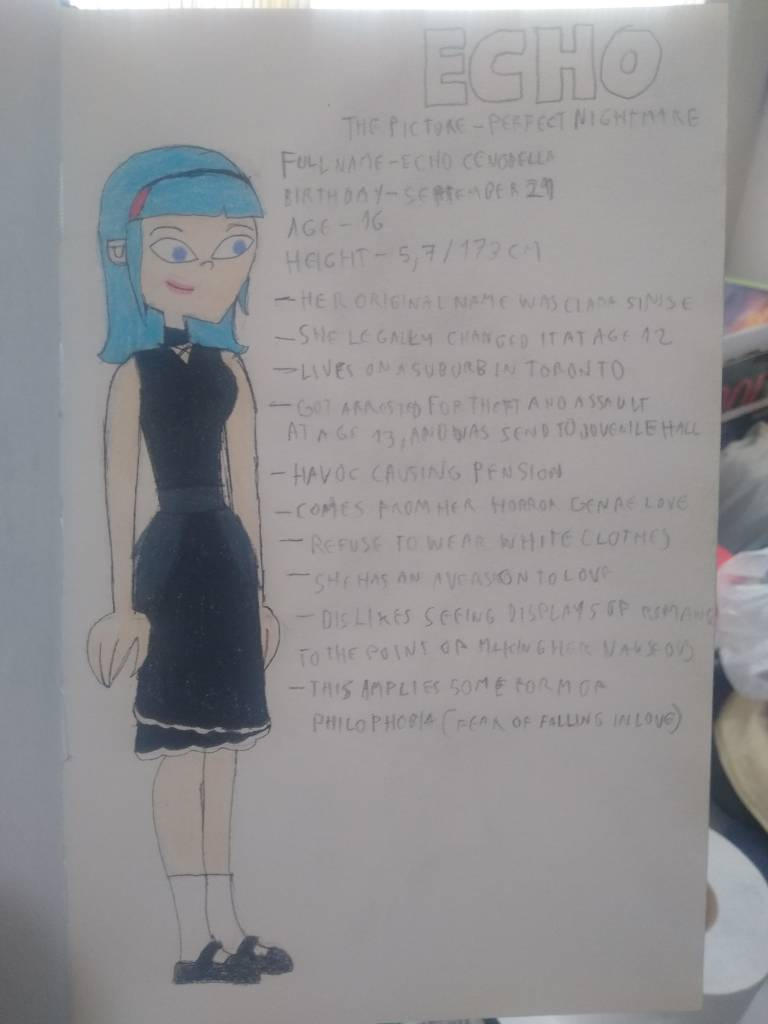 ECHO
THE PICTURE-PERFECT NIGHTMARE
FULL NAME-ECHO CENOBELLA
BIRTHDAY-SEPTEMBER 29
AGE-16
HEIGHT-5,7/173 CM
-HER ORIGINAL NAME WAS CLARA SINISE
-SHE LEGALLY CHANGED IT AT AGE 12
-LIVES ON A SUBURB IN TORONTO
-GOT ARRESTED FOR THEFT AND ASSAULT
AT AGE 13, AND WAS SEND TO JUVENILE HALL
-HAVOC CAUSING PENSION
-COMES FROM HER HORROR GENRE LOVE
-REFUSE TO WEAR WHITE CLOTHES
-SHE HAS AN AVERSION TO LOVE
-DISLIKES SEEING DISPLAYS OF ROMANS
TO THE POINT OF MAKING HER NAUSEOUS
-THIS AMPLIES SOME FORM OF
PHILOPHOBIA (FEAR OF FALLING IN LOVE)